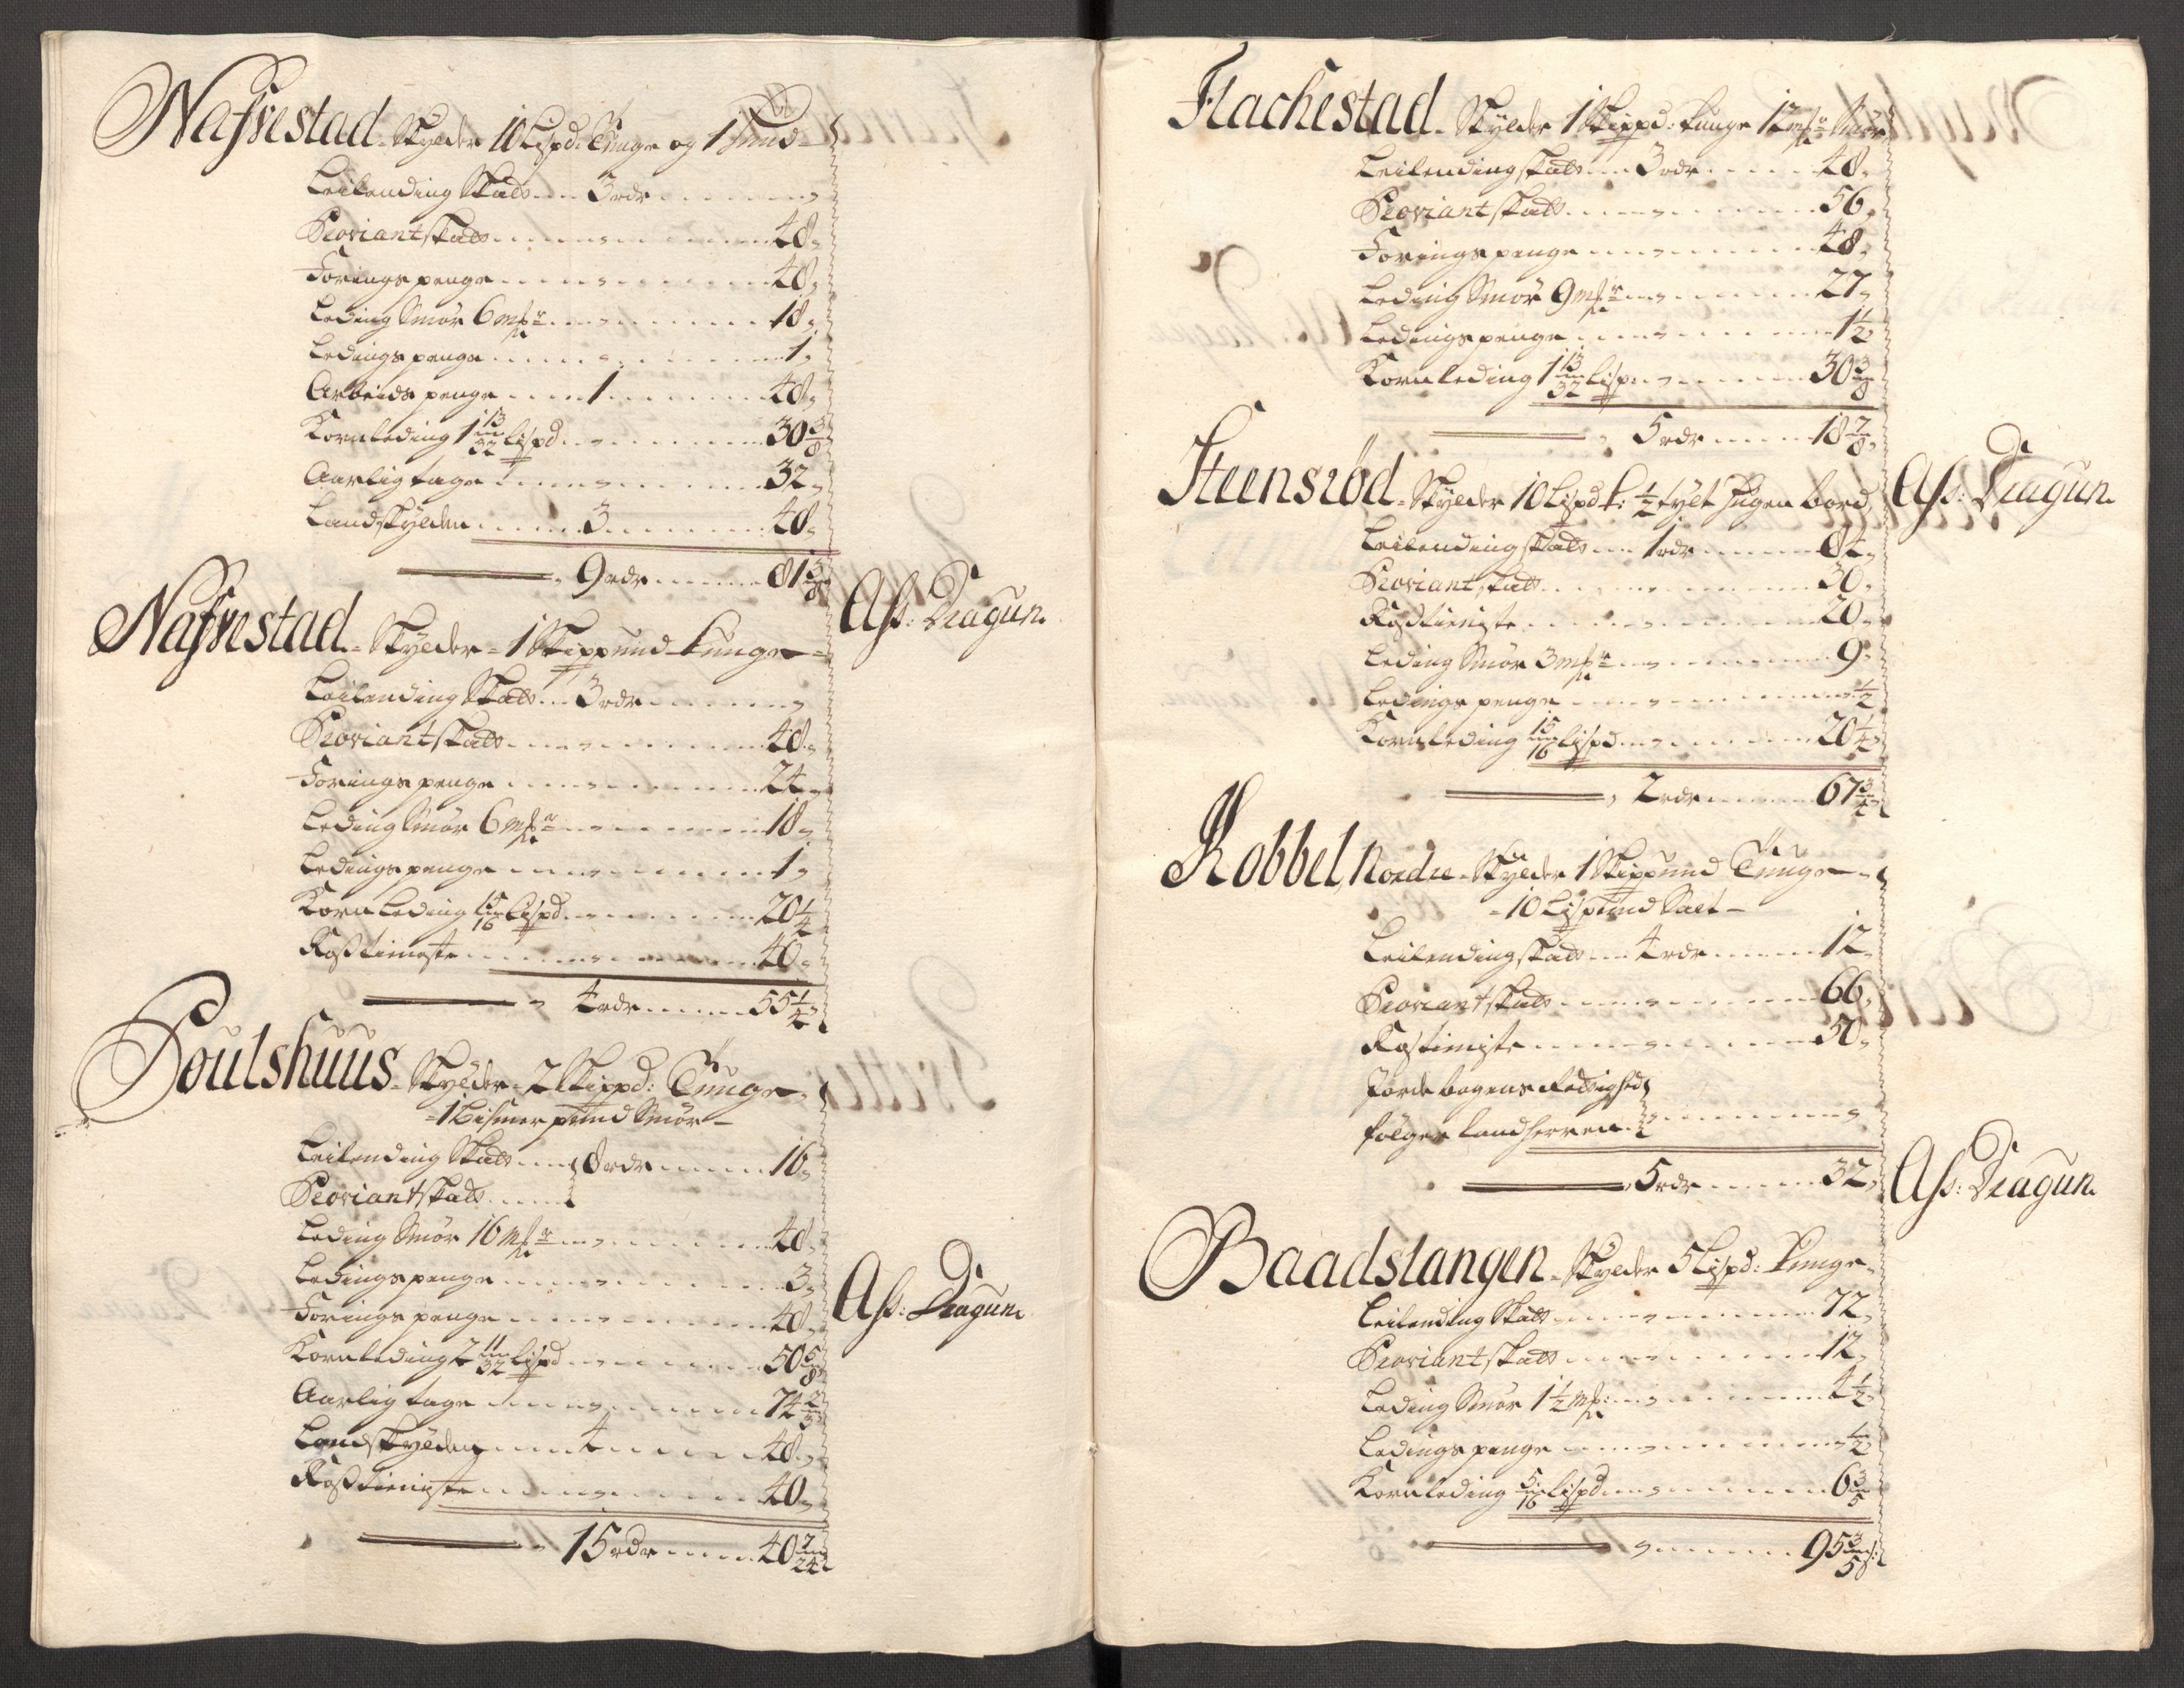 Nafvestad. Skylder 10 Lispd: Tunge og 1 Hud
Leilending Skatt 3 rdr
Proviantskatt 48
Foringspenge 48
Leding Smør 6 mkr 18
Ledingspenge 1
Arbeids penge 1 48
Kornleding 1 13/32 Lispd 30 3/8
Aarlig tage 32
Landskylden 3 48
9 rdr 81 3/8
Nafvestad. Skylder 1 Skippund tunge Aff: Dragun.
Leilending Skatt 3 rdr
Proviantskatt 48
Foringspenge 24
Leding Smør 6 mkr 18
Ledingspenge 1
Kornleding 15/16 Lispd 20 1/4
Rosstieneste 40
4 rdr 55 1/4
Poulshuus. Skylder 2 Skippd: Tunge
1 Bismerpund Smør
Leilending Skatt 8 rdr 16
Proviantskatt
Leding Smør 16 mkr 48
Ledingspenge 3
Foringspenge 48 Aff: Dragun
Kornleding 2 11/32 Lispd 50 5/8
Aarlig tage 74 2/3
Landskylden 4 48
Rosstieniste 40
15 rdr 40 7/24
Flachestad. Skylder 1 Skippd: tunge 12 mkr Smør
Leilendingskatt 3 rdr 48
Proviantskatt 56
Foringspenge 48
Leding Smør 9 mkr 27
Ledingspenge 1 1/2
Kornleding 1 13/32 Lisp: 30 3/8
5 rdr 18 7/8
Steensrød. Skylder 10 Lispd t: 1/2 tylt Hugen bord Aff: Dragun.
Leilendingskatt 1 rdr 84
Proviantskatt 30
Rosstieniste 20
Leding Smør 3 mkr 9
Ledingspenge 1/2
Kornleding 15/16 Lispd 20 1/4
2 rdr 67 3/4
Kobbel, Nordre. Skylder 1 Skippund Tunge
10 Lispund Salt
Leilendingskatt 4 rdr 12
Proviantskatt 66
Rosstieniste 50
Jordebogens Rettighed
følger Landherren
5 rdr 32 Aff: Dragun.
Baadstangen. Skylder 5 Lispd: tunge
Leilending Skatt 72
Proviantskatt 12
Leding Smør 1 1/2 mk: 4 1/2
Ledingspenge 1/2
Kornleding 5/16 Lispd 6 3/5
95 3/5